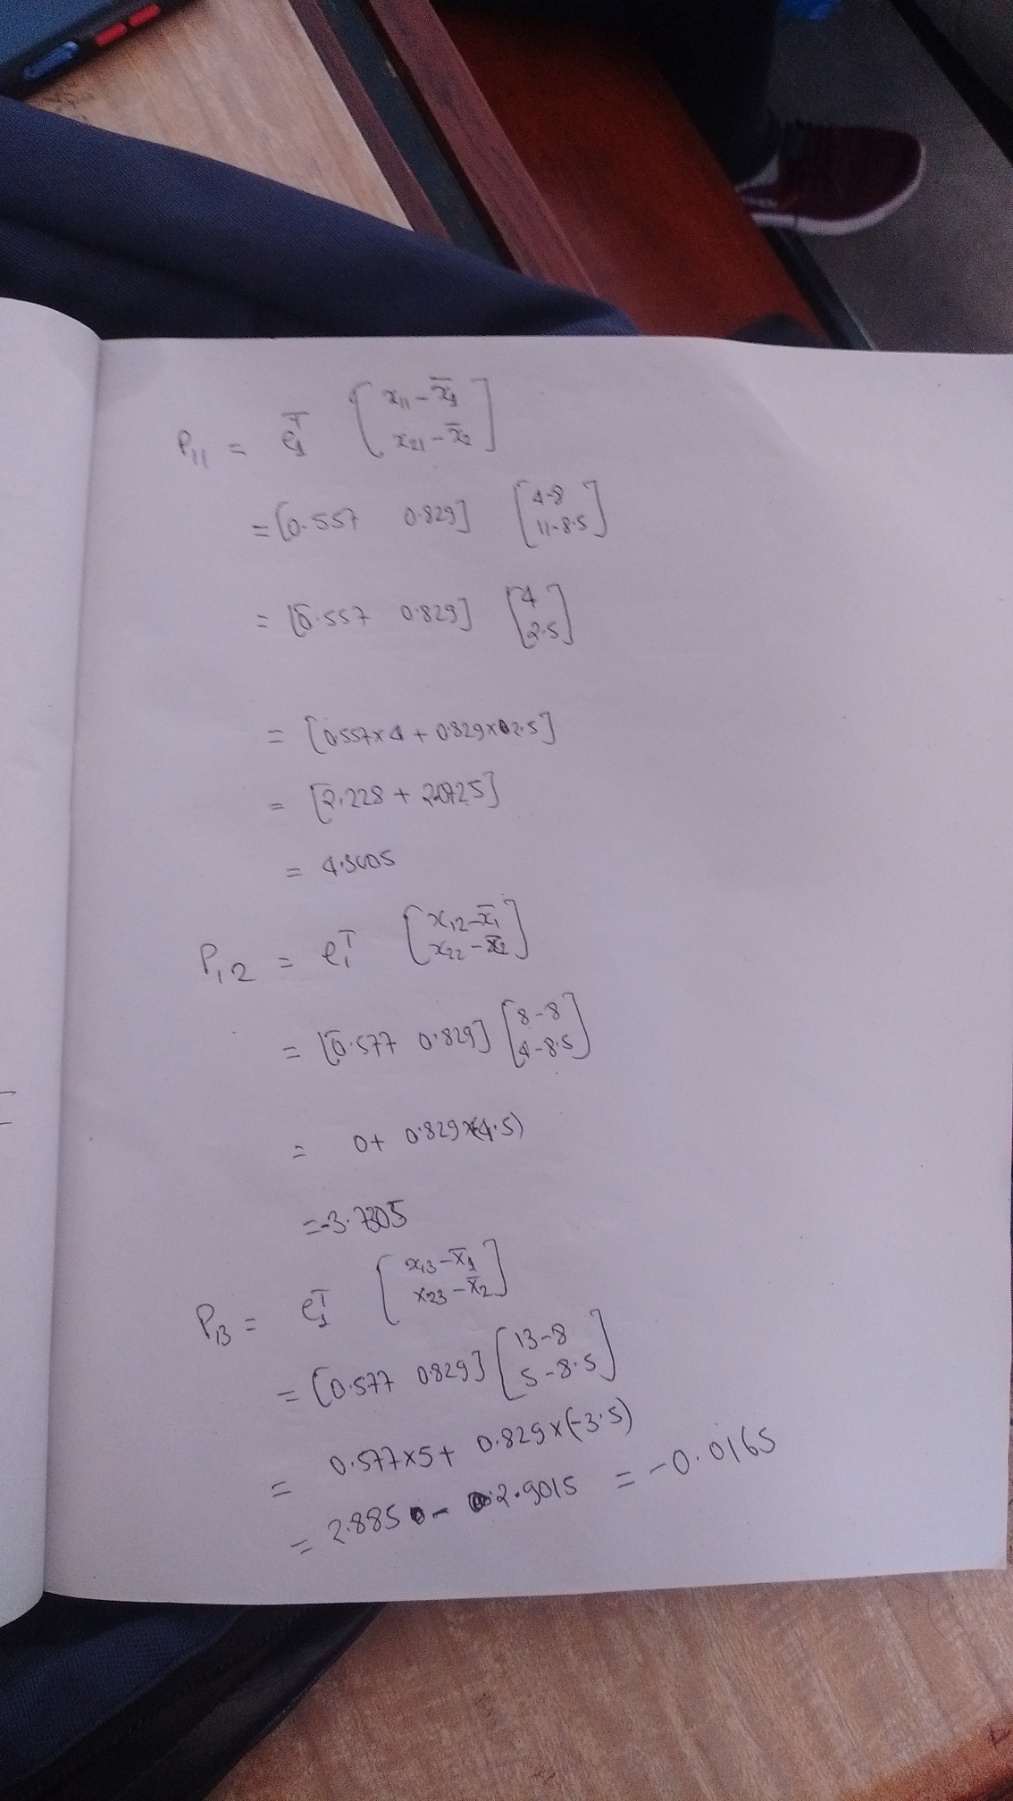 P₁₁ = e₁ᵀ [x₁₁ - x̄₁ ; x₂₁ - x̄₂]
= [0.557 0.829] [4-8 ; 11-8.5]
= [0.557 0.829] [4 ; 2.5]
= [0.557×4 + 0.829×2.5]
= [2.228 + 2.0725]
= 4.3005
P₁₂ = e₁ᵀ [x₁₂ - x̄₁ ; x₂₂ - x̄₂]
= [0.577 0.829] [8-8 ; 4-8.5]
= 0+ 0.829×(-4.5)
= -3.7305
P₁₃ = e₁ᵀ [x₁₃ - x̄₁ ; x₂₃ - x̄₂]
= [0.577 0.829] [13-8 ; 5-8.5]
= 0.577×5+ 0.829×(-3.5)
= 2.885 - 2.9015 = -0.0165